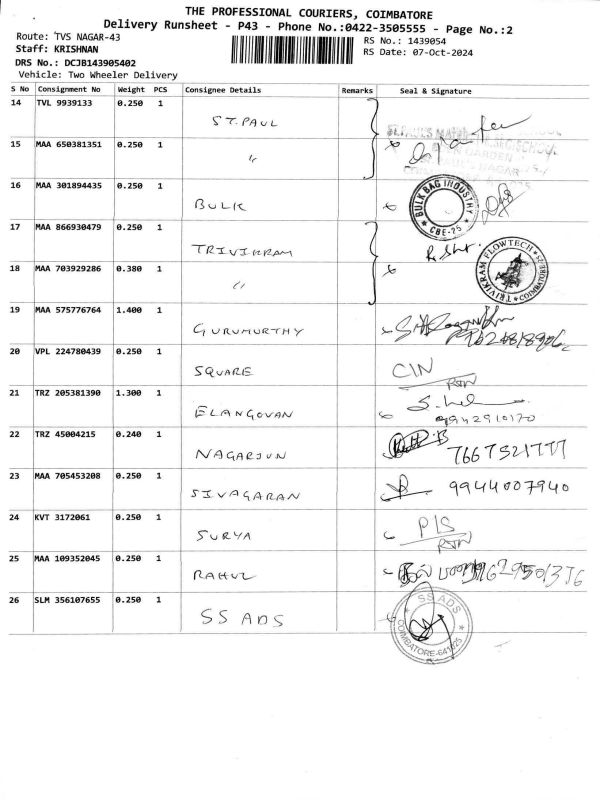 THE PROFESSIONAL COURIERS, COIMBATORE
Delivery Runsheet - P43 - Phone No.:0422-3505555 - Page No.:2
Route: TVS NAGAR-43
RS No.: 1439054
Staff: KRISHNAN
RS Date: 07-Oct-2024
DRS No.: DCJB143905402
Vehicle: Two Wheeler Delivery
S No Consignment No Weight PCS Consignee Details Remarks Seal & Signature
14 TVL 9939133 0.250 1 ST.PAUL
15 MAA 650381351 0.250 1 "
16 MAA 301894435 0.250 1 BULK
BULK BAG INDUSTRY
* CBE-25 *
17 MAA 866930479 0.250 1 TRIVIKRAM
18 MAA 703929286 0.380 1 "
TRIVIKRAM FLOWTECH
* COIMBATORE *
19 MAA 575776764 1.400 1 GURUMURTHY
20 VPL 224780439 0.250 1 SQUARE CIN
RTN
21 TRZ 205381390 1.300 1 ELANGOVAN
9942910170
22 TRZ 45004215 0.240 1 NAGARJUN 7667321777
23 MAA 705453208 0.250 1 SIVAGARAN 9944007940
24 KVT 3172061 0.250 1 SURYA P/S
RTN
25 MAA 109352045 0.250 1 RAHUL
26 SLM 356107655 0.250 1 SS ADS
SS ADS
COIMBATORE-641025